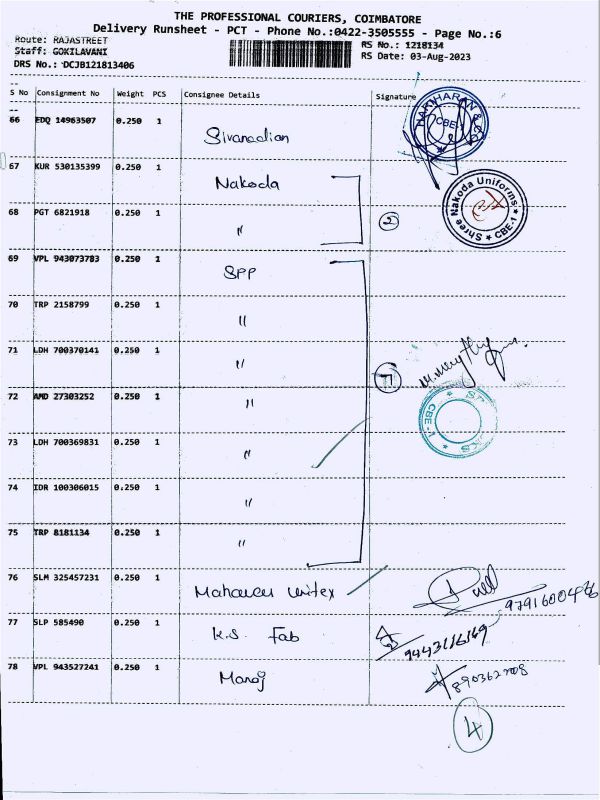 THE PROFESSIONAL COURIERS, COIMBATORE
Delivery Runsheet - PCT - Phone No.:0422-3505555 - Page No.:6
Route: RAJASTREET
RS No.: 1218134
Staff: GOKILAVANI
RS Date: 03-Aug-2023
DRS No.: DCJB121813406
S No Consignment No Weight PCS Consignee Details Signature
66 EDQ 14963507 0.250 1
HARIHARAN & CO CBE-1
67 KUR 530135399 0.250 1 Nakoda
Shree Nakoda Uniforms * CBE-1 *
68 PGT 6821918 0.250 1 〃 2
69 VPL 943073783 0.250 1 SPP
70 TRP 2158799 0.250 1 〃
71 LDH 700370141 0.250 1 〃 7
72 AMD 27303252 0.250 1 〃
CBE-1
73 LDH 700369831 0.250 1 〃
74 IDR 100306015 0.250 1 〃
75 TRP 8181134 0.250 1 〃
76 SLM 325457231 0.250 1 Unitex
77 SLP 585490 0.250 1 K.S. Fab 9443116169
78 VPL 943527241 0.250 1 Manoj
4